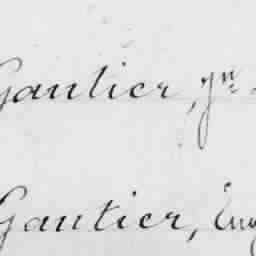 Gautier, Jn
Gautier, Eug